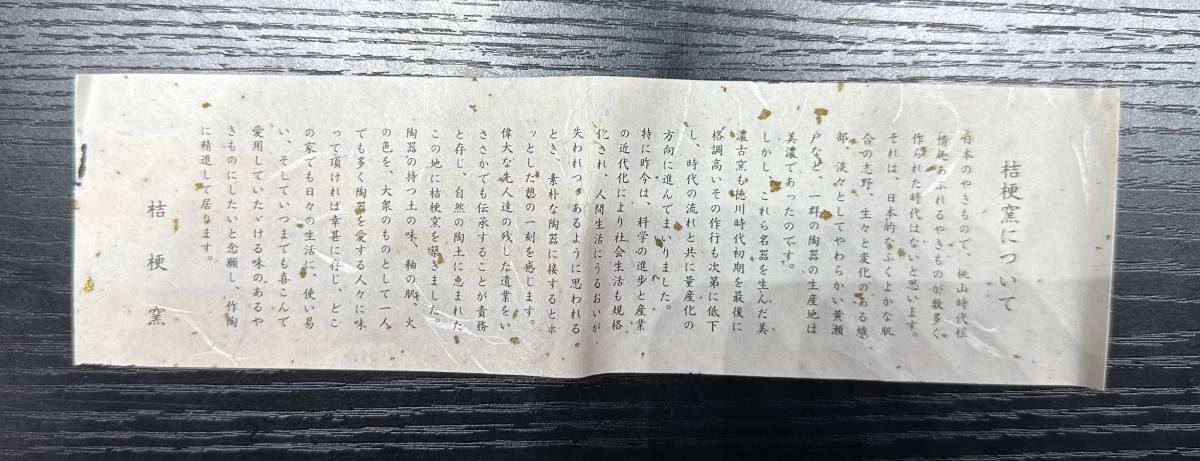 桔梗窯について
日本のやきもので、桃山時代程
情趣あふれるやきものが数多く
作られた時代はないと思います。
それは、日本的なふくよかな肌
合の志野、生々と変化のある織
部、淡々としてやわらかい黄瀬
戸など、一群の陶器の生産地は
美濃であったのです。
しかし、これら名器を生んだ美
濃古窯も徳川時代初期を最後に
格調高いその作行も次第に低下
し、時代の流れと共に量産化の
方向に進んでまいりました。
特に昨今は、科学の進歩と産業
の近代化により社会生活も規格
化され、人間生活にうるおいが
失われつゝあるように思われる
とき、素朴な陶器に接するとホ
ッとした憩の一刻を感じます。
偉大な先人達の残した遺業をい
さゝかでも伝承することが責務
と存じ、自然の陶土に恵まれた
この地に桔梗窯を築きました。
陶器の持つ土の味、釉の肌、火
の色を、大衆のものとして一人
でも多く陶器を愛する人々に味
って頂ければ幸甚に存じ、どこ
の家でも日々の生活に、使い易
い、そしていつまでも喜こんで
愛用していたゞける味のあるや
きものにしたいと念願し、作陶
に精進して居ります。
桔梗窯